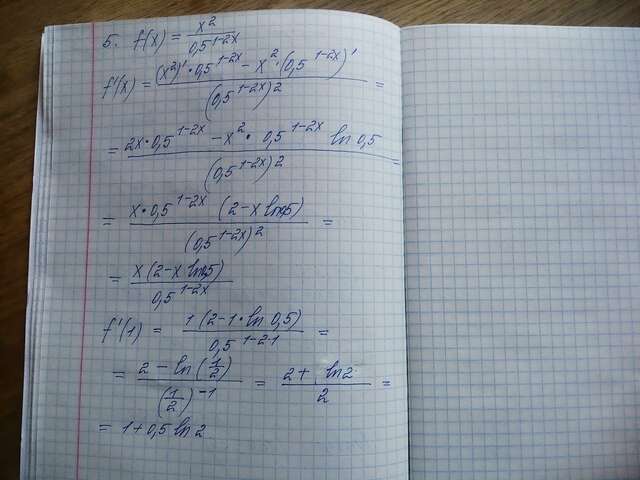 5. f(x) = x²/0,5^(1-2x)
f'(x) = ((x²)' · 0,5^(1-2x) - x² · (0,5^(1-2x))')/(0,5^(1-2x))² =
= (2x · 0,5^(1-2x) - x² · 0,5^(1-2x) ln 0,5)/(0,5^(1-2x))² =
= (x · 0,5^(1-2x) (2 - x ln 0,5))/(0,5^(1-2x))² =
= (x (2 - x ln 0,5))/0,5^(1-2x)
f'(1) = (1 (2 - 1 · ln 0,5))/0,5^(1-2·1) =
= (2 - ln (1/2))/(1/2)^(-1) = (2 + ln 2)/2 =
= 1 + 0,5 ln 2